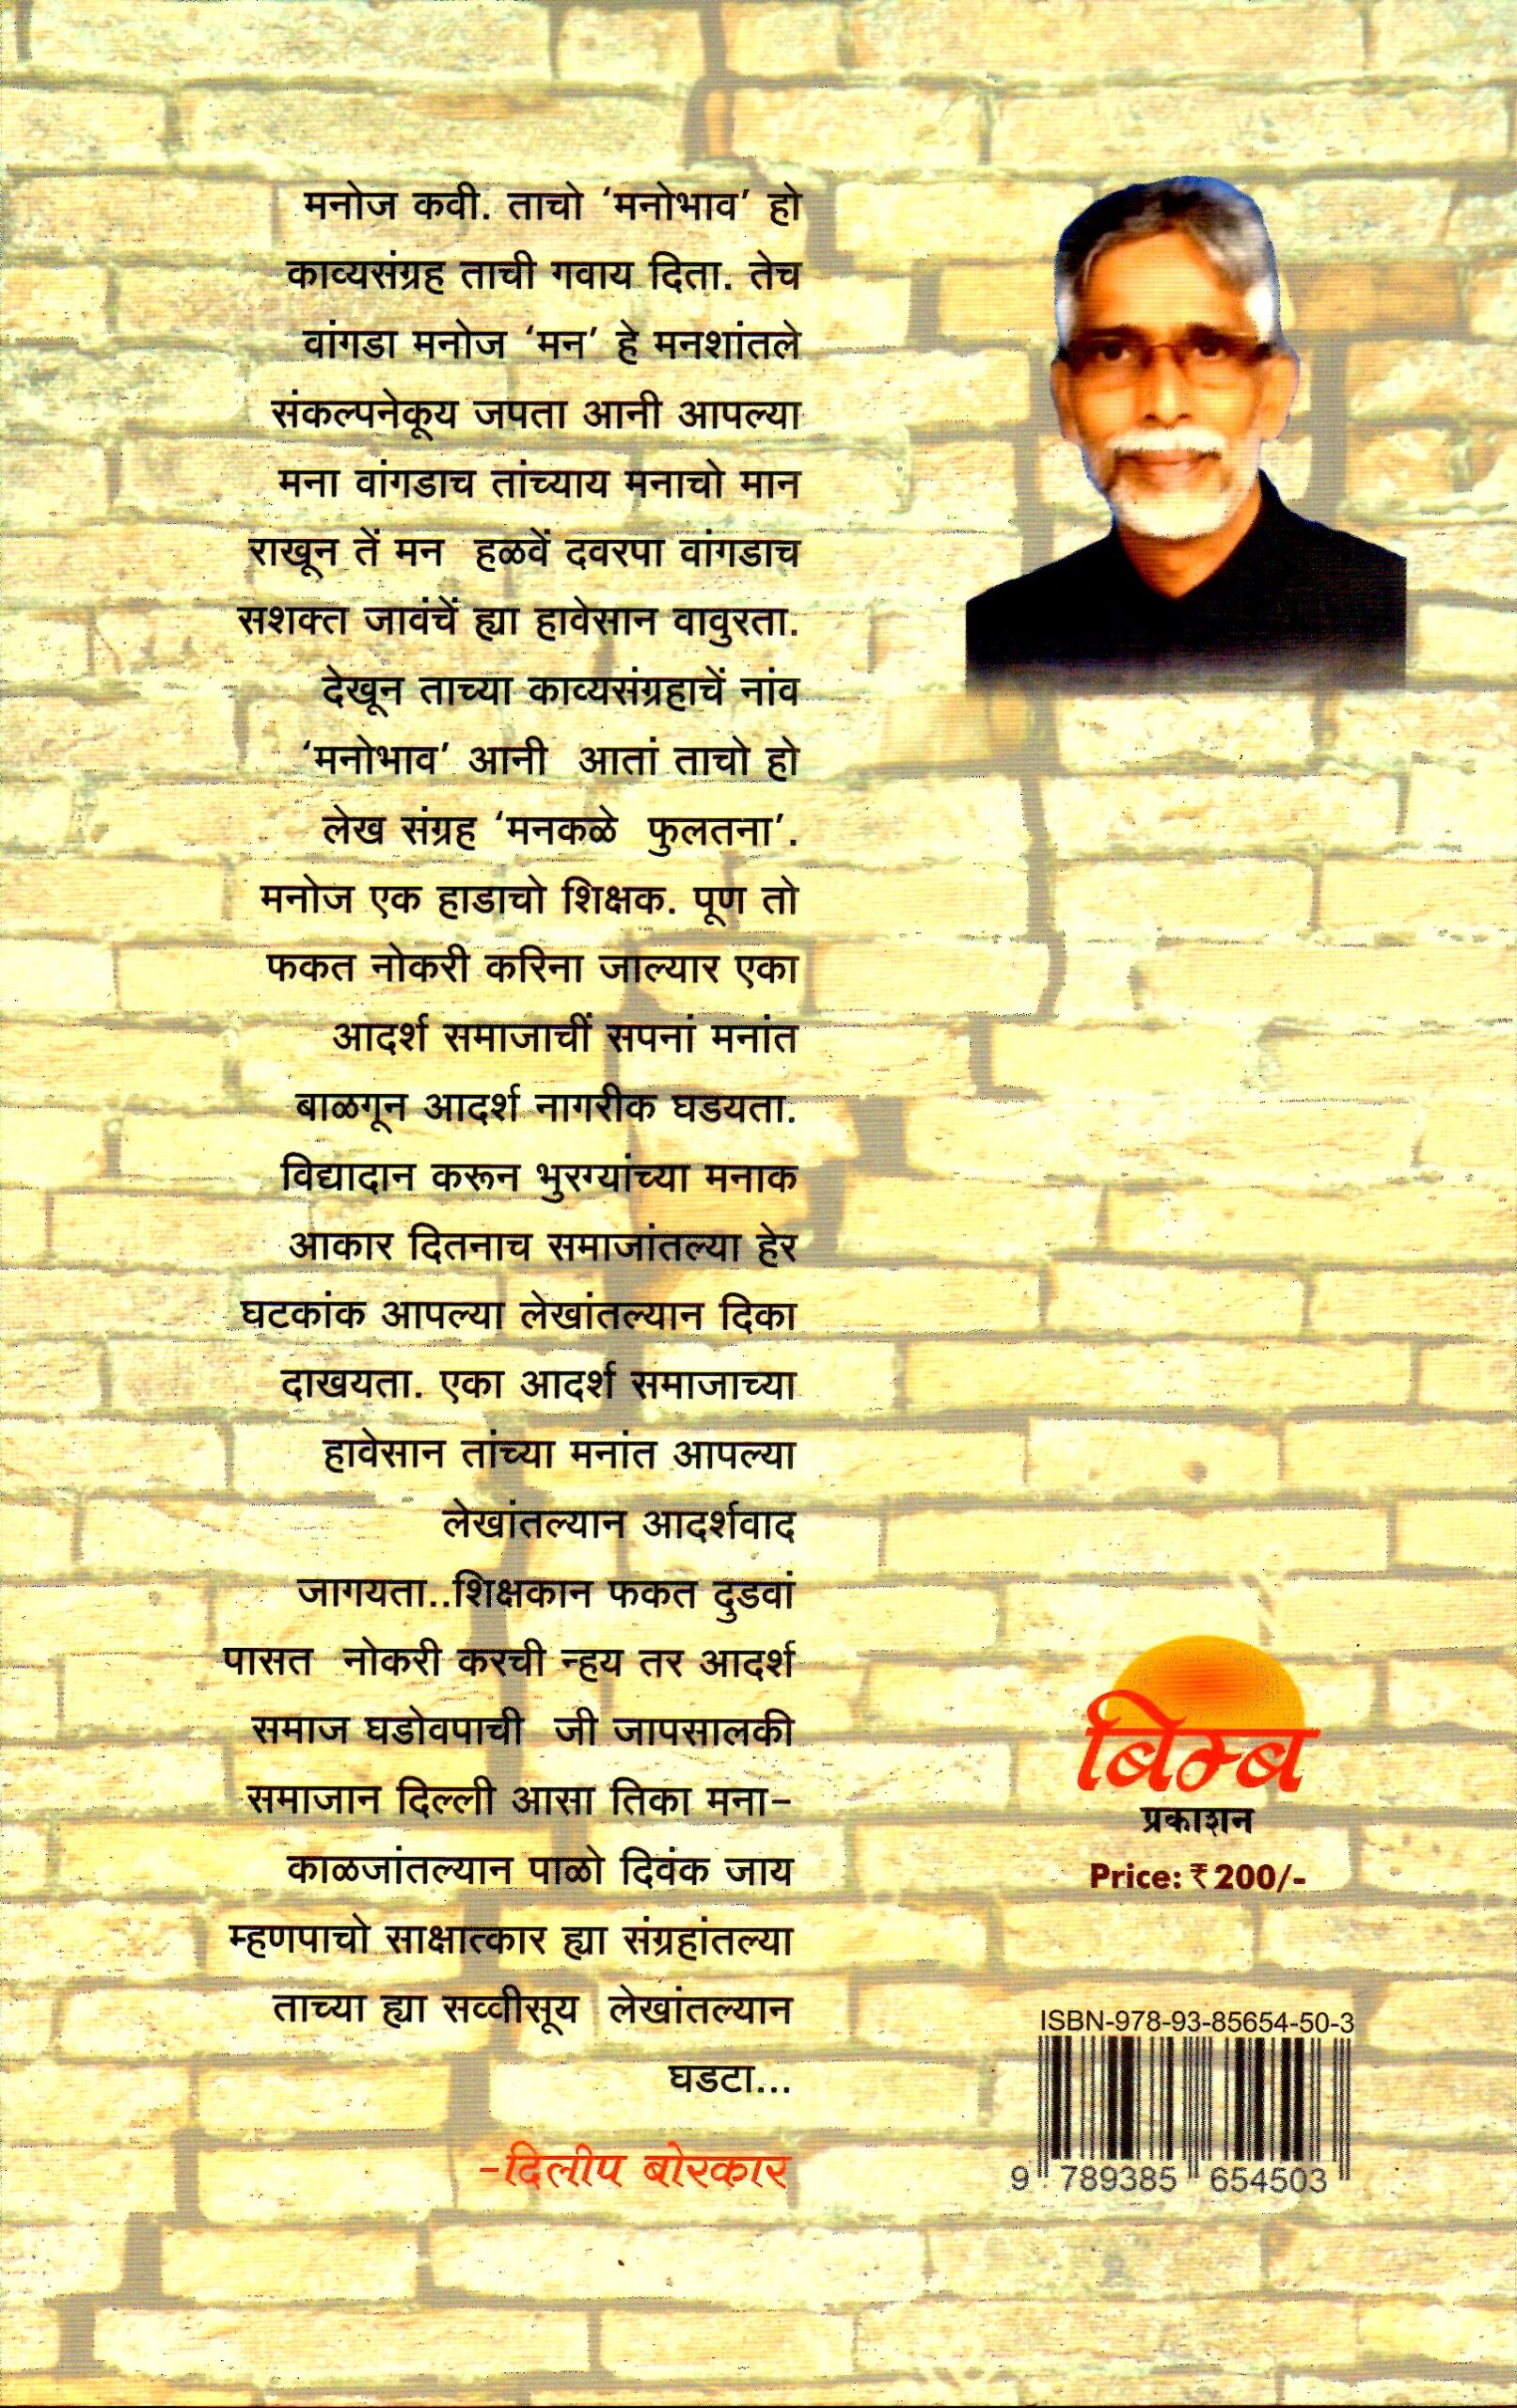 मनोज कवी. ताचो ‘मनोभाव’ हो
काव्यसंग्रह ताची गवाय दिता. तेच
वांगडा मनोज ‘मन’ हे मनशांतले
संकल्पनेकूय जपता आनी आपल्या
मना वांगडाच तांच्याय मनाचो मान
राखून तें मन हळवें दवरपा वांगडाच
सशक्त जावंचें ह्या हावेसान वावुरता.
देखून ताच्या काव्यसंग्रहाचें नांव
‘मनोभाव’ आनी आतां ताचो हो
लेख संग्रह ‘मनकळे फुलतना’.
मनोज एक हाडाचो शिक्षक. पूण तो
फकत नोकरी करिना जाल्यार एका
आदर्श समाजाचीं सपनां मनांत
बाळगून आदर्श नागरीक घडयता.
विद्यादान करून भुरग्यांच्या मनाक
आकार दितनाच समाजांतल्या हेर
घटकांक आपल्या लेखांतल्यान दिका
दाखयता. एका आदर्श समाजाच्या
हावेसान तांच्या मनांत आपल्या
लेखांतल्यान आदर्शवाद
जागयता..शिक्षकान फकत दुडवां
पासत नोकरी करची न्हय तर आदर्श
समाज घडोवपाची जी जापसालकी
समाजान दिल्ली आसा तिका मना-
काळजांतल्यान पाळो दिवंक जाय
म्हणपाचो साक्षात्कार ह्या संग्रहांतल्या
ताच्या ह्या सव्वीसूय लेखांतल्यान
घडटा...
-दिलीप बोरकार
बिम्ब
प्रकाशन
Price: ₹ 200/-
ISBN-978-93-85654-50-3
9 789385 654503